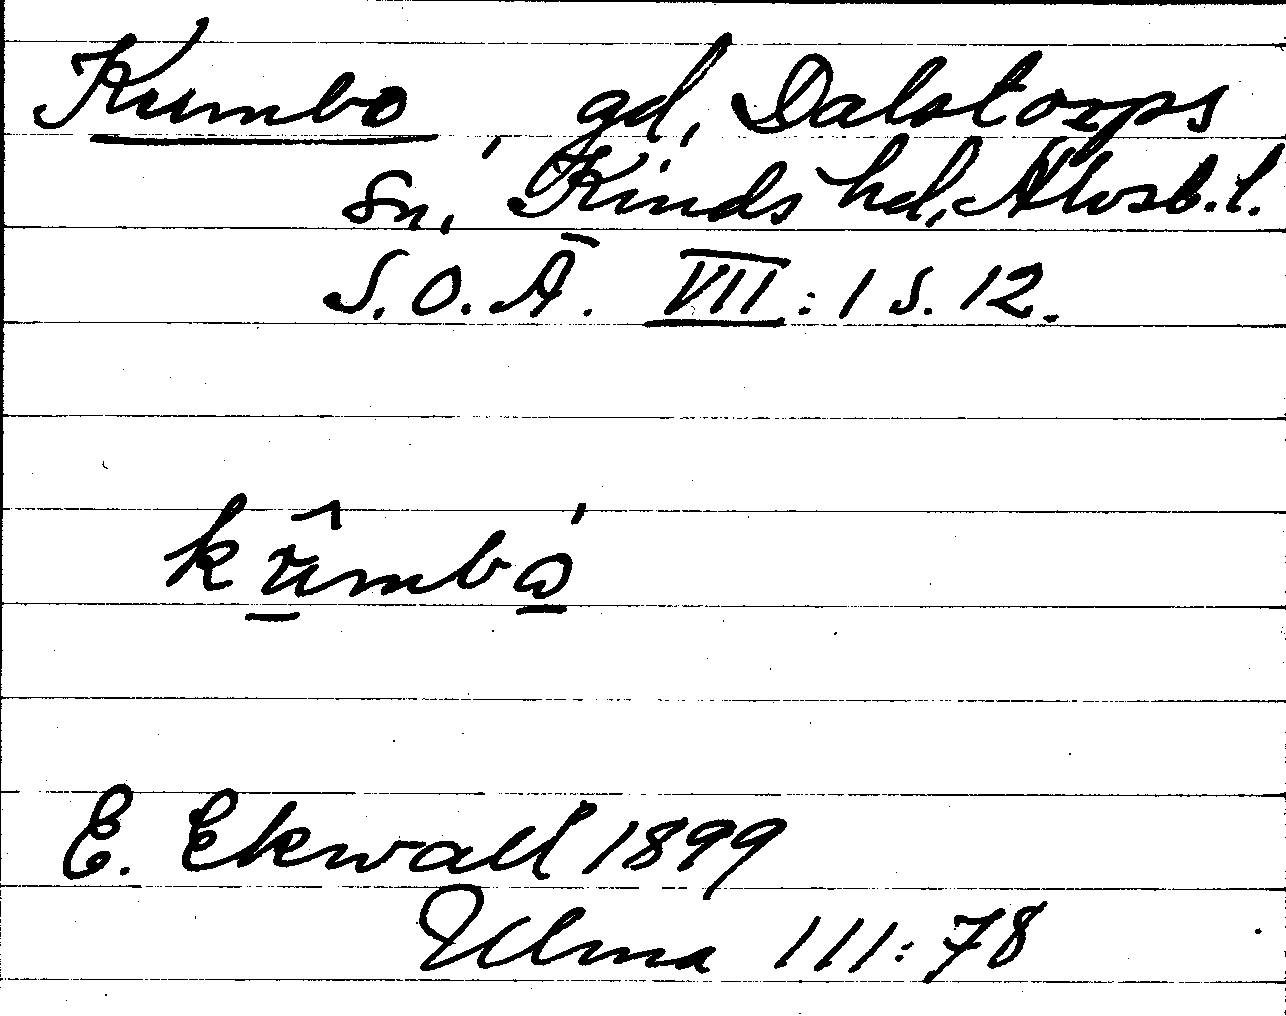 Kumbo, gd, Dalstorps
sn, Kinds hd, Älvsb. l.
S.O.Ä. VII:1 s. 12.
kumbo
E. Ekwall 1899
Ulma 111:78